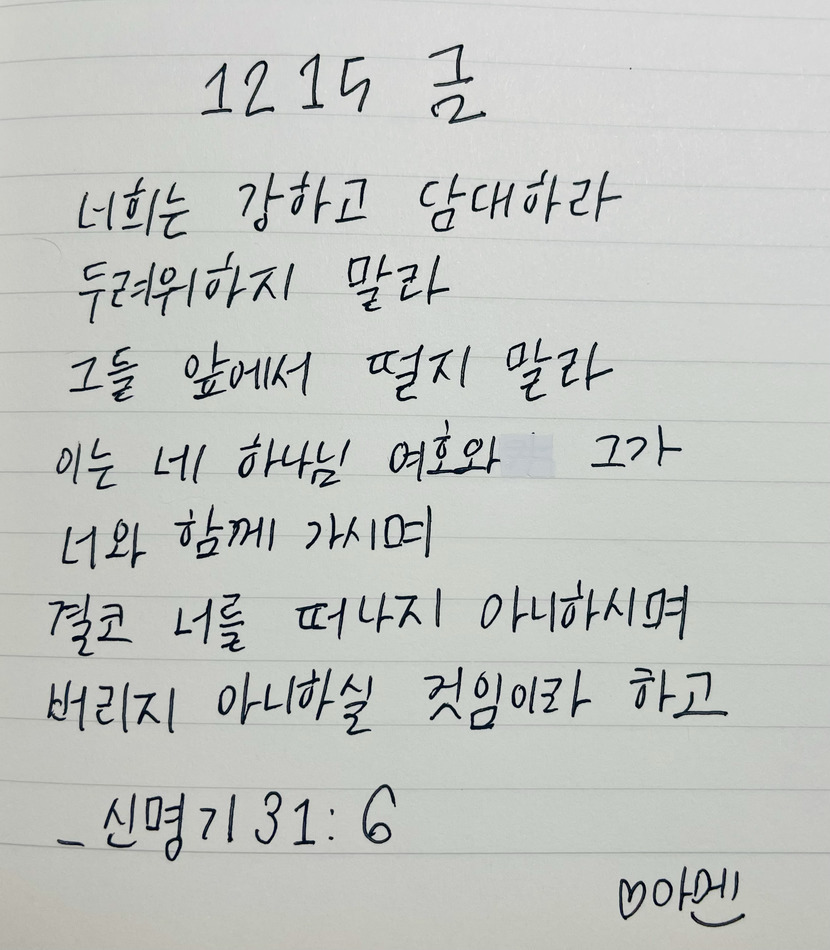 1215 금
너희는 강하고 담대하라
두려워하지 말라
그들 앞에서 떨지 말라
이는 네 하나님 여호와 그가
너와 함께 가시며
결코 너를 떠나지 아니하시며
버리지 아니하실 것임이라 하고
_신명기 31:6
♡아멘